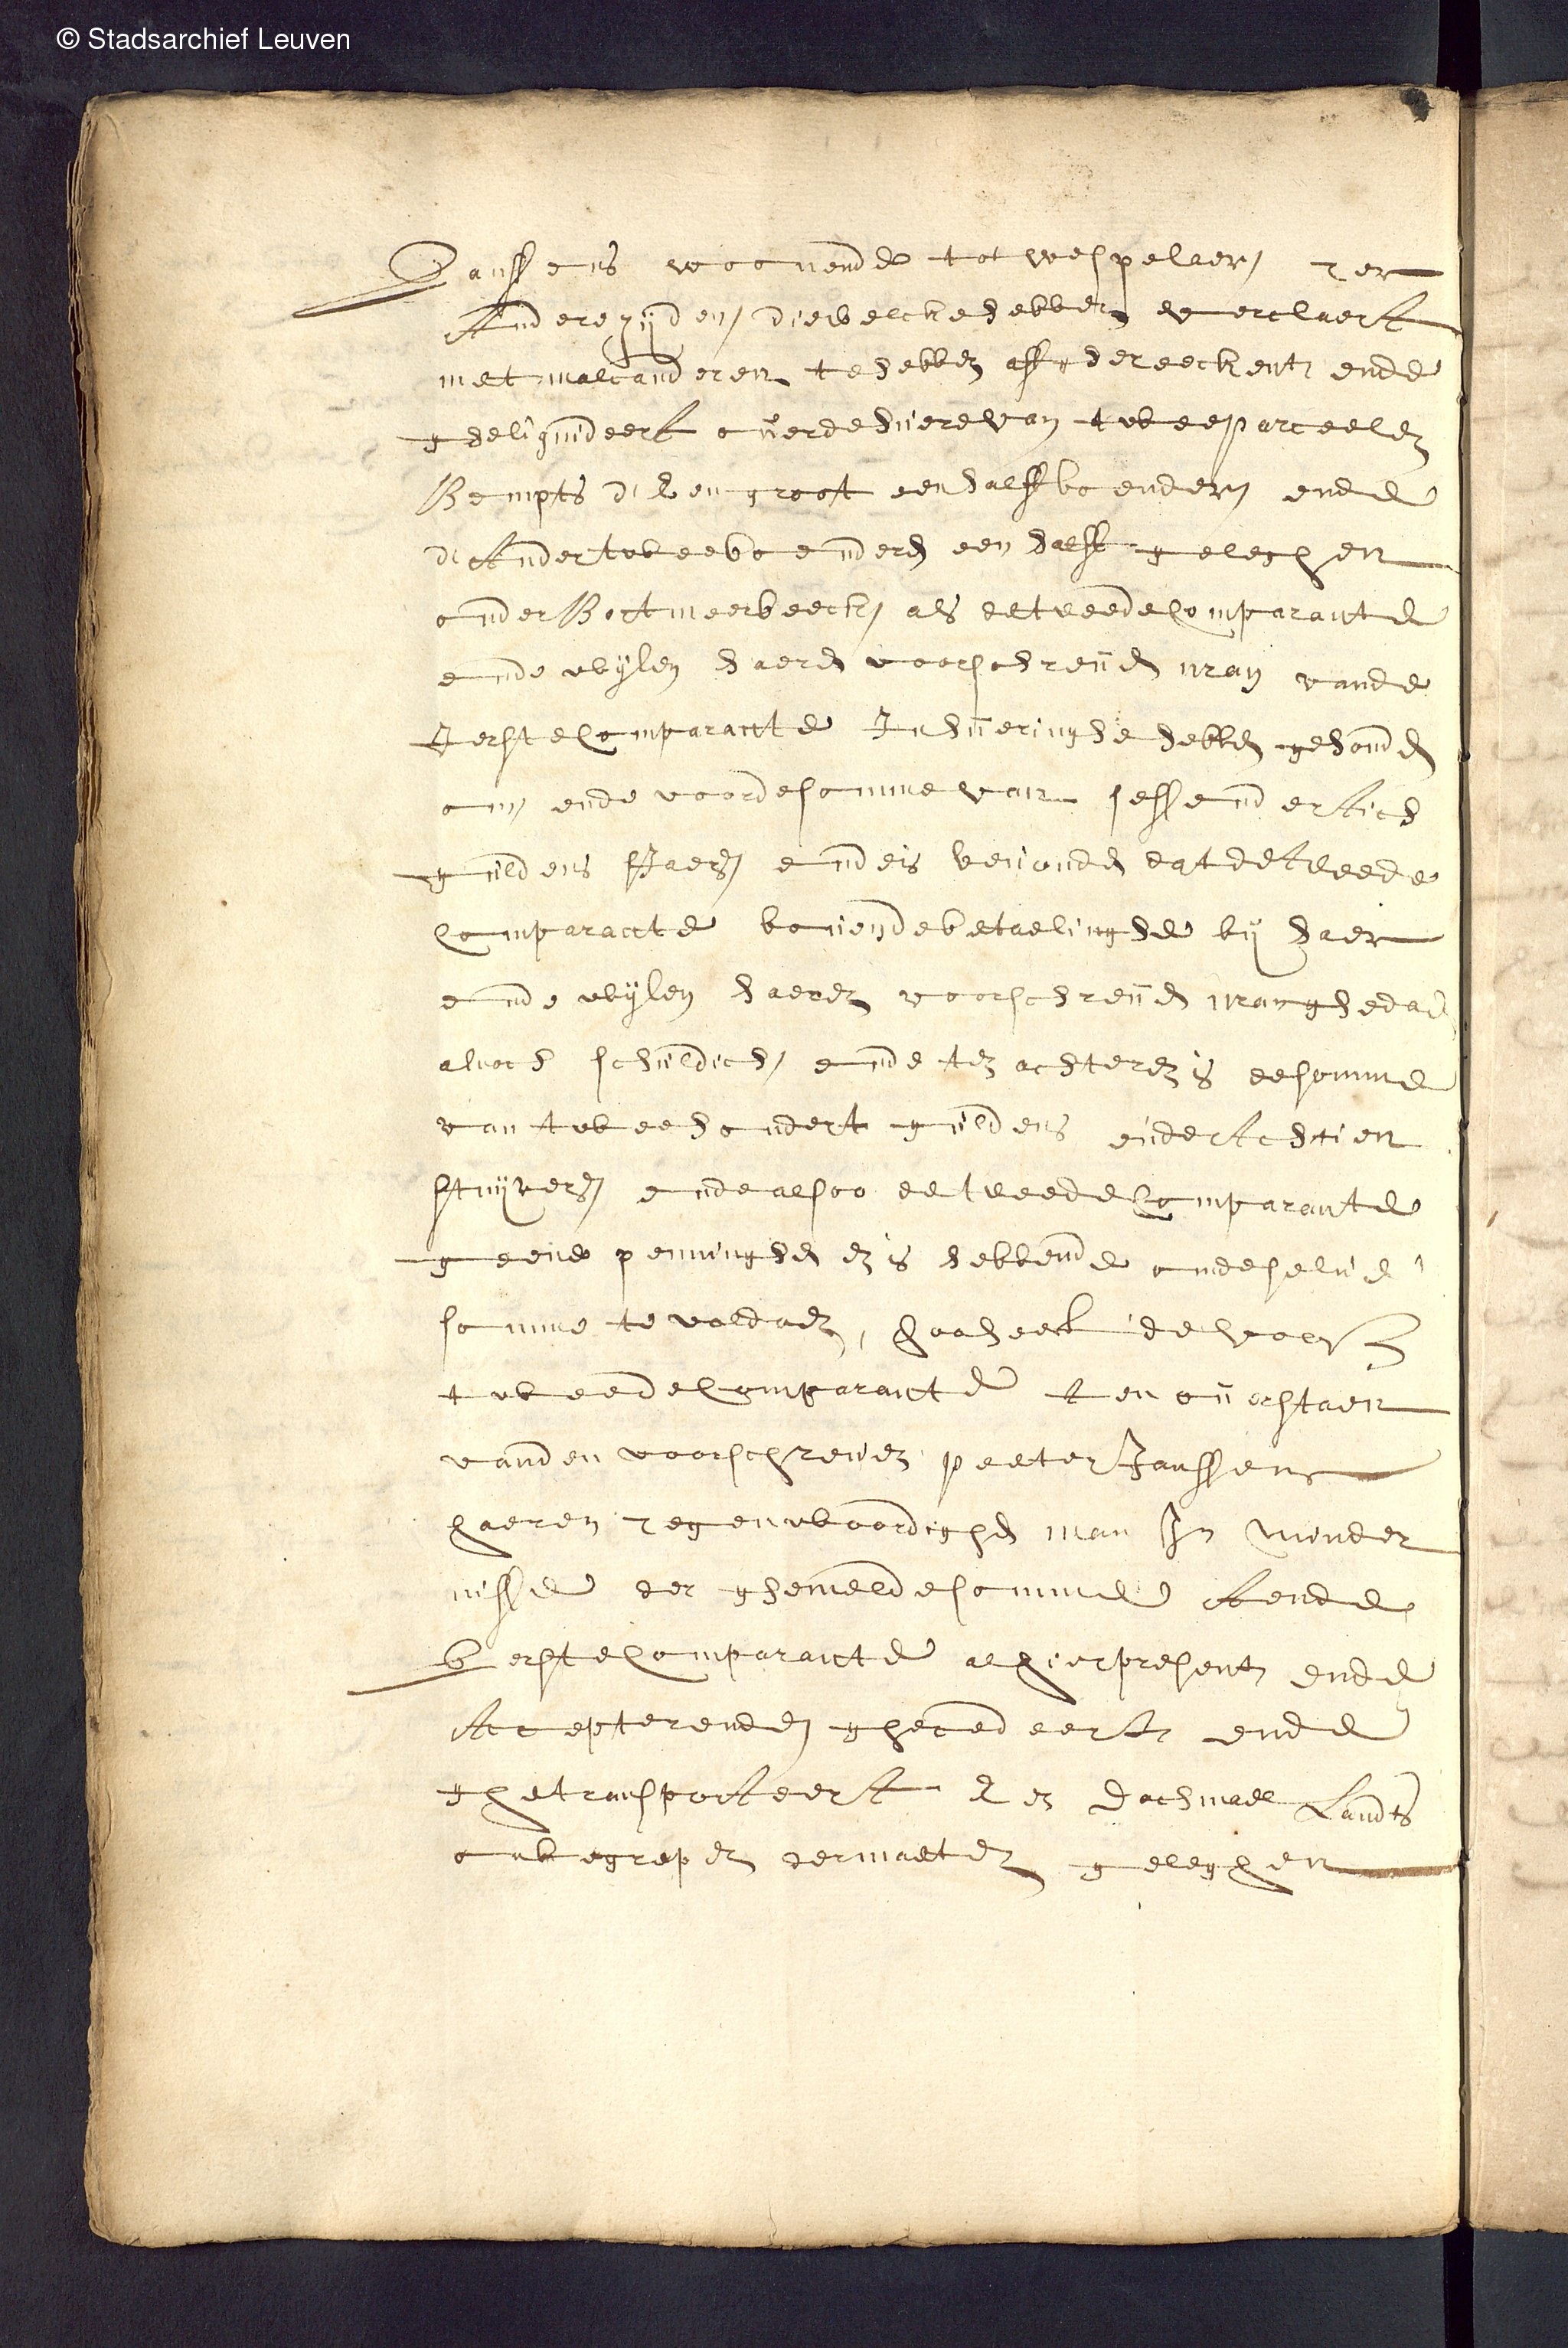 © Stadsarchief Leuven
Janssens woonende tot wespelaer, ter
Andere zyden, diewelcke hebben verclaert
met malcanderen te hebben affghereeckent, ende
gheliquideert over de huere van twee parceelen
Bempts d'een groot een halff boender, ende
d'Ander twee boenders een halff gelegen
onder Bortmeerbeeck, als de tweede Comparante
ende wylen haeren voorschreven man vande
Ierste Comparante In hueringhe hebben gehouden
om, ende voor de somme van sessendertich
guldens s'Jaers, ende is bevonden dat de tweede
Comparante boven de betaelinghe by haer
ende wylen haeren voorschreven man ghedaen
alnoch schuldich, ende ten achteren is de somme
van twee hondert guldens en derthien
stuyvers, ende alsoo de tweede Comparante
geene penninghen en is hebbende om de selve
somme te voldoen, soo heeft de voors
tweede Comparante ten overstaen
vanden voorschreven peeter Janssens
haeren tegenwoordighen man In minder
nisse der ghemelde somme Aende
Ierste Comparante alhier present, ende
Accepterende, ghecedeert, ende
ghetransporteert Een dachmael Landts
onbegrepen der maeten gelegen